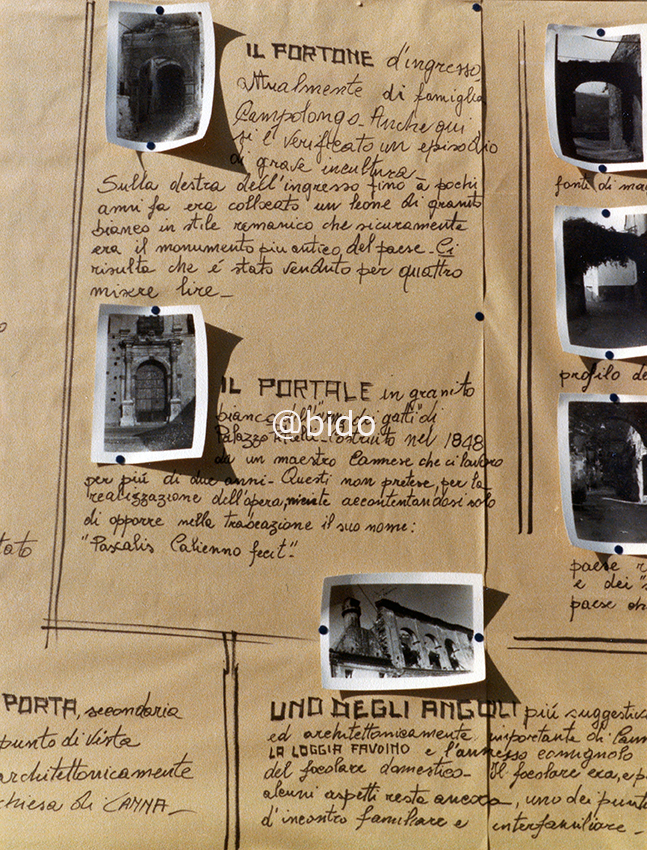 IL PORTONE d'ingresso,
Attualmente di famiglia
Campolongo - Anche qui
si è verificato un episodio
di grave incultura -
Sulla destra dell'ingresso fino a pochi
anni fa era collocato un leone di granito
bianco in stile romanico che sicuramente
era il monumento più antico del paese - Ci
risulta che é stato venduto per quattro
misere lire -
IL PORTALE in granito
bianco gatti" di
Palazzo costruito nel 1848
da un maestro Cannese che ci lavorò
per più di due anni - Questi non pretese, per la
realizzazione dell'opera, niente accontentandosi solo
di apporre nella trabeazione il suo nome:
"Pascalis Catienno fecit" -
PORTA, secondaria
punto di vista
architettonicamente
chiesa di CANNA -
UNO DEGLI ANGOLI più
ed architettonicamente importante di
LA LOGGIA FAVOINO e l'annesso comignolo
del focolare domestico - Il focolare era, e
alcuni aspetti resta ancora, uno dei
d'incontro familiare e interfamiliare -
fonte di
profilo
paese
e dei
paese
@bido